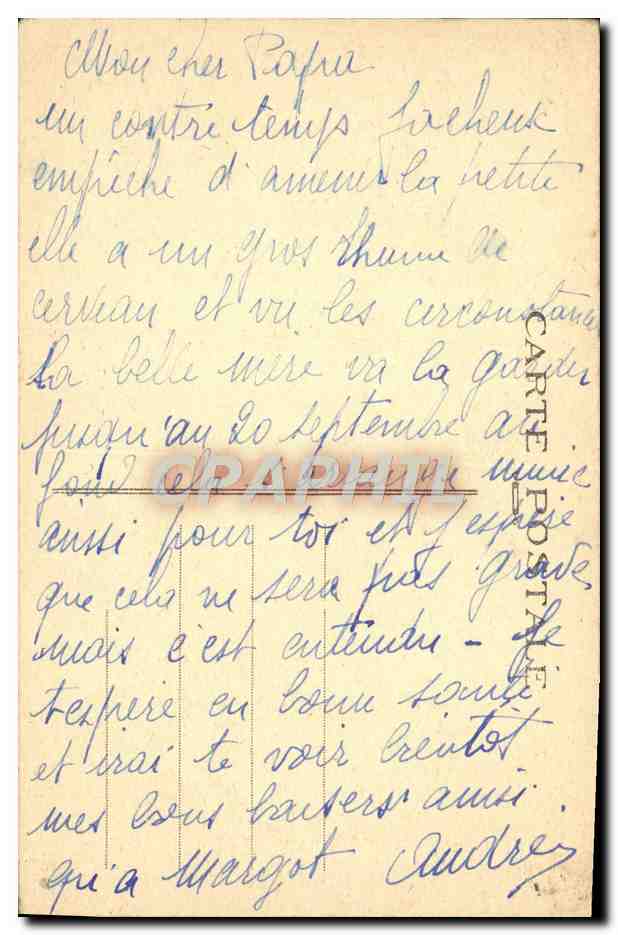 Mon cher Papa
un contre temps facheux
empêche d'amener la petite
elle a un gros rhume de
cerveau et vu les circonstances
la belle mère va la garder
jusqu'au 20 septembre au
fond cela mieux
aussi pour toi et j'espère
que cela ne sera pas grave
mais c'est entendu - Je
t'espère en bonne santé
et irai te voir bientôt
mes bons baisers ainsi
qu'a Margot André
CARTE POSTALE
CPAPHIL